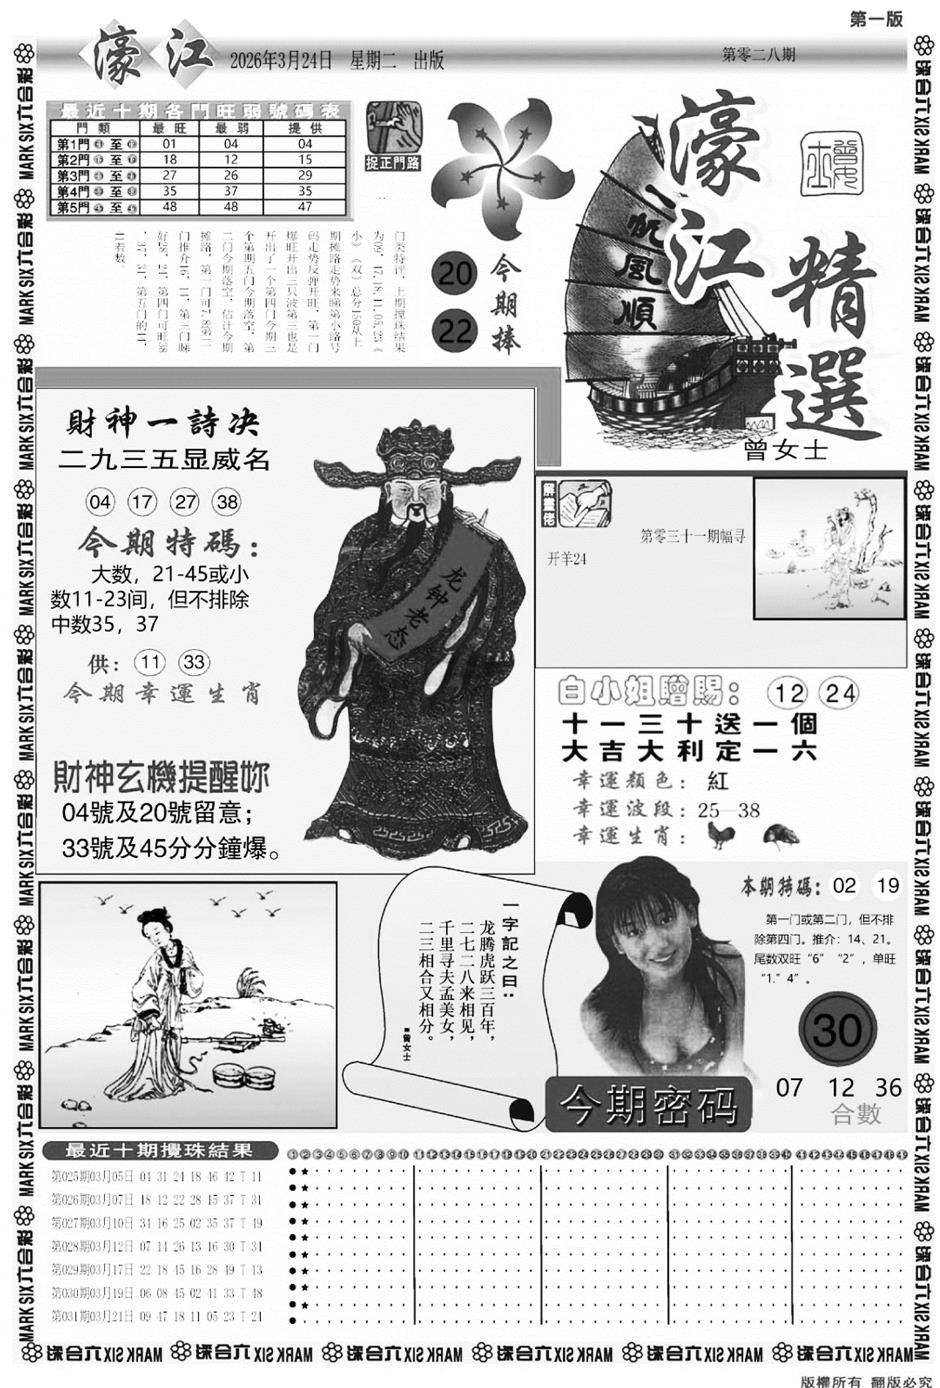 第一版
濠江
2026年3月24日 星期二 出版
第零二八期
最近十期各門旺弱號碼表
門類 最旺 最弱 提供
第1門 至 01 04 04
第2門 至 18 12 15
第3門 至 27 26 29
第4門 至 35 37 35
第5門 至 48 48 47
捉正門路
门类特评，上期搅珠结果
为09、47.18.11.05.23《
小》《双》总分150从上
期摊路走势来睇第小路号
码走势反弹开旺，第一门
爆旺开出三只波第三也是
开出了一个第四门今期三
个第期五门今期落空，第
二门今期落空，估计今期
摊路，第一门可7.8第二
门推介16、11，第三门睇
好28、21，第四门可旺强
、37、31，第五门的41、
20
22
今期捧
一帆風順
濠江
精選
曾女士
財神一詩决
二九三五显威名
04 17 27 38
今期特碼：
大数，21-45或小
数11-23间，但不排除
中数35，37
供： 11 33
今期幸運生肖
財神玄機提醒妳
04號及20號留意；
33號及45分分鐘爆。
龙钟老态
解畫佬
第零三十一期幅寻
开羊24
白小姐贈賜： 12 24
十一三十送一個
大吉大利定一六
幸運顏色： 紅
幸運波段：25—38
幸運生肖：
一字記之曰：
龙腾虎跃三百年，
二七二八来相见，
千里寻夫孟美女，
二三相合又相分。
■曾女士
本期特碼： 02 19
第一门或第二门，但不排
除第四门。推介：14、21。
尾数双旺“6”“2”，单旺
“1.”4”。
30
今期密码
07 12 36
合數
最近十期攪珠結果
第025期03月05日 04 31 24 18 46 42 T 11
第026期03月07日 18 12 22 28 15 37 T 31
第027期03月10日 34 16 25 02 35 37 T 49
第028期03月12日 07 14 26 13 16 30 T 31
第029期03月17日 22 18 45 16 28 49 T 13
第030期03月19日 06 08 45 02 41 33 T 48
第031期03月21日 09 47 18 11 05 23 T 21
①②③④⑤⑥⑦⑧⑨⑩⑪⑫⑬⑭⑮⑯⑰⑱⑲⑳㉑㉒㉓㉔㉕㉖㉗㉘㉙㉚㉛㉜㉝㉞㉟㊱㊲㊳㊴㊵㊶㊷㊸㊹㊺㊻㊼㊽㊾
六合彩 MARK SIX
版權所有 翻版必究